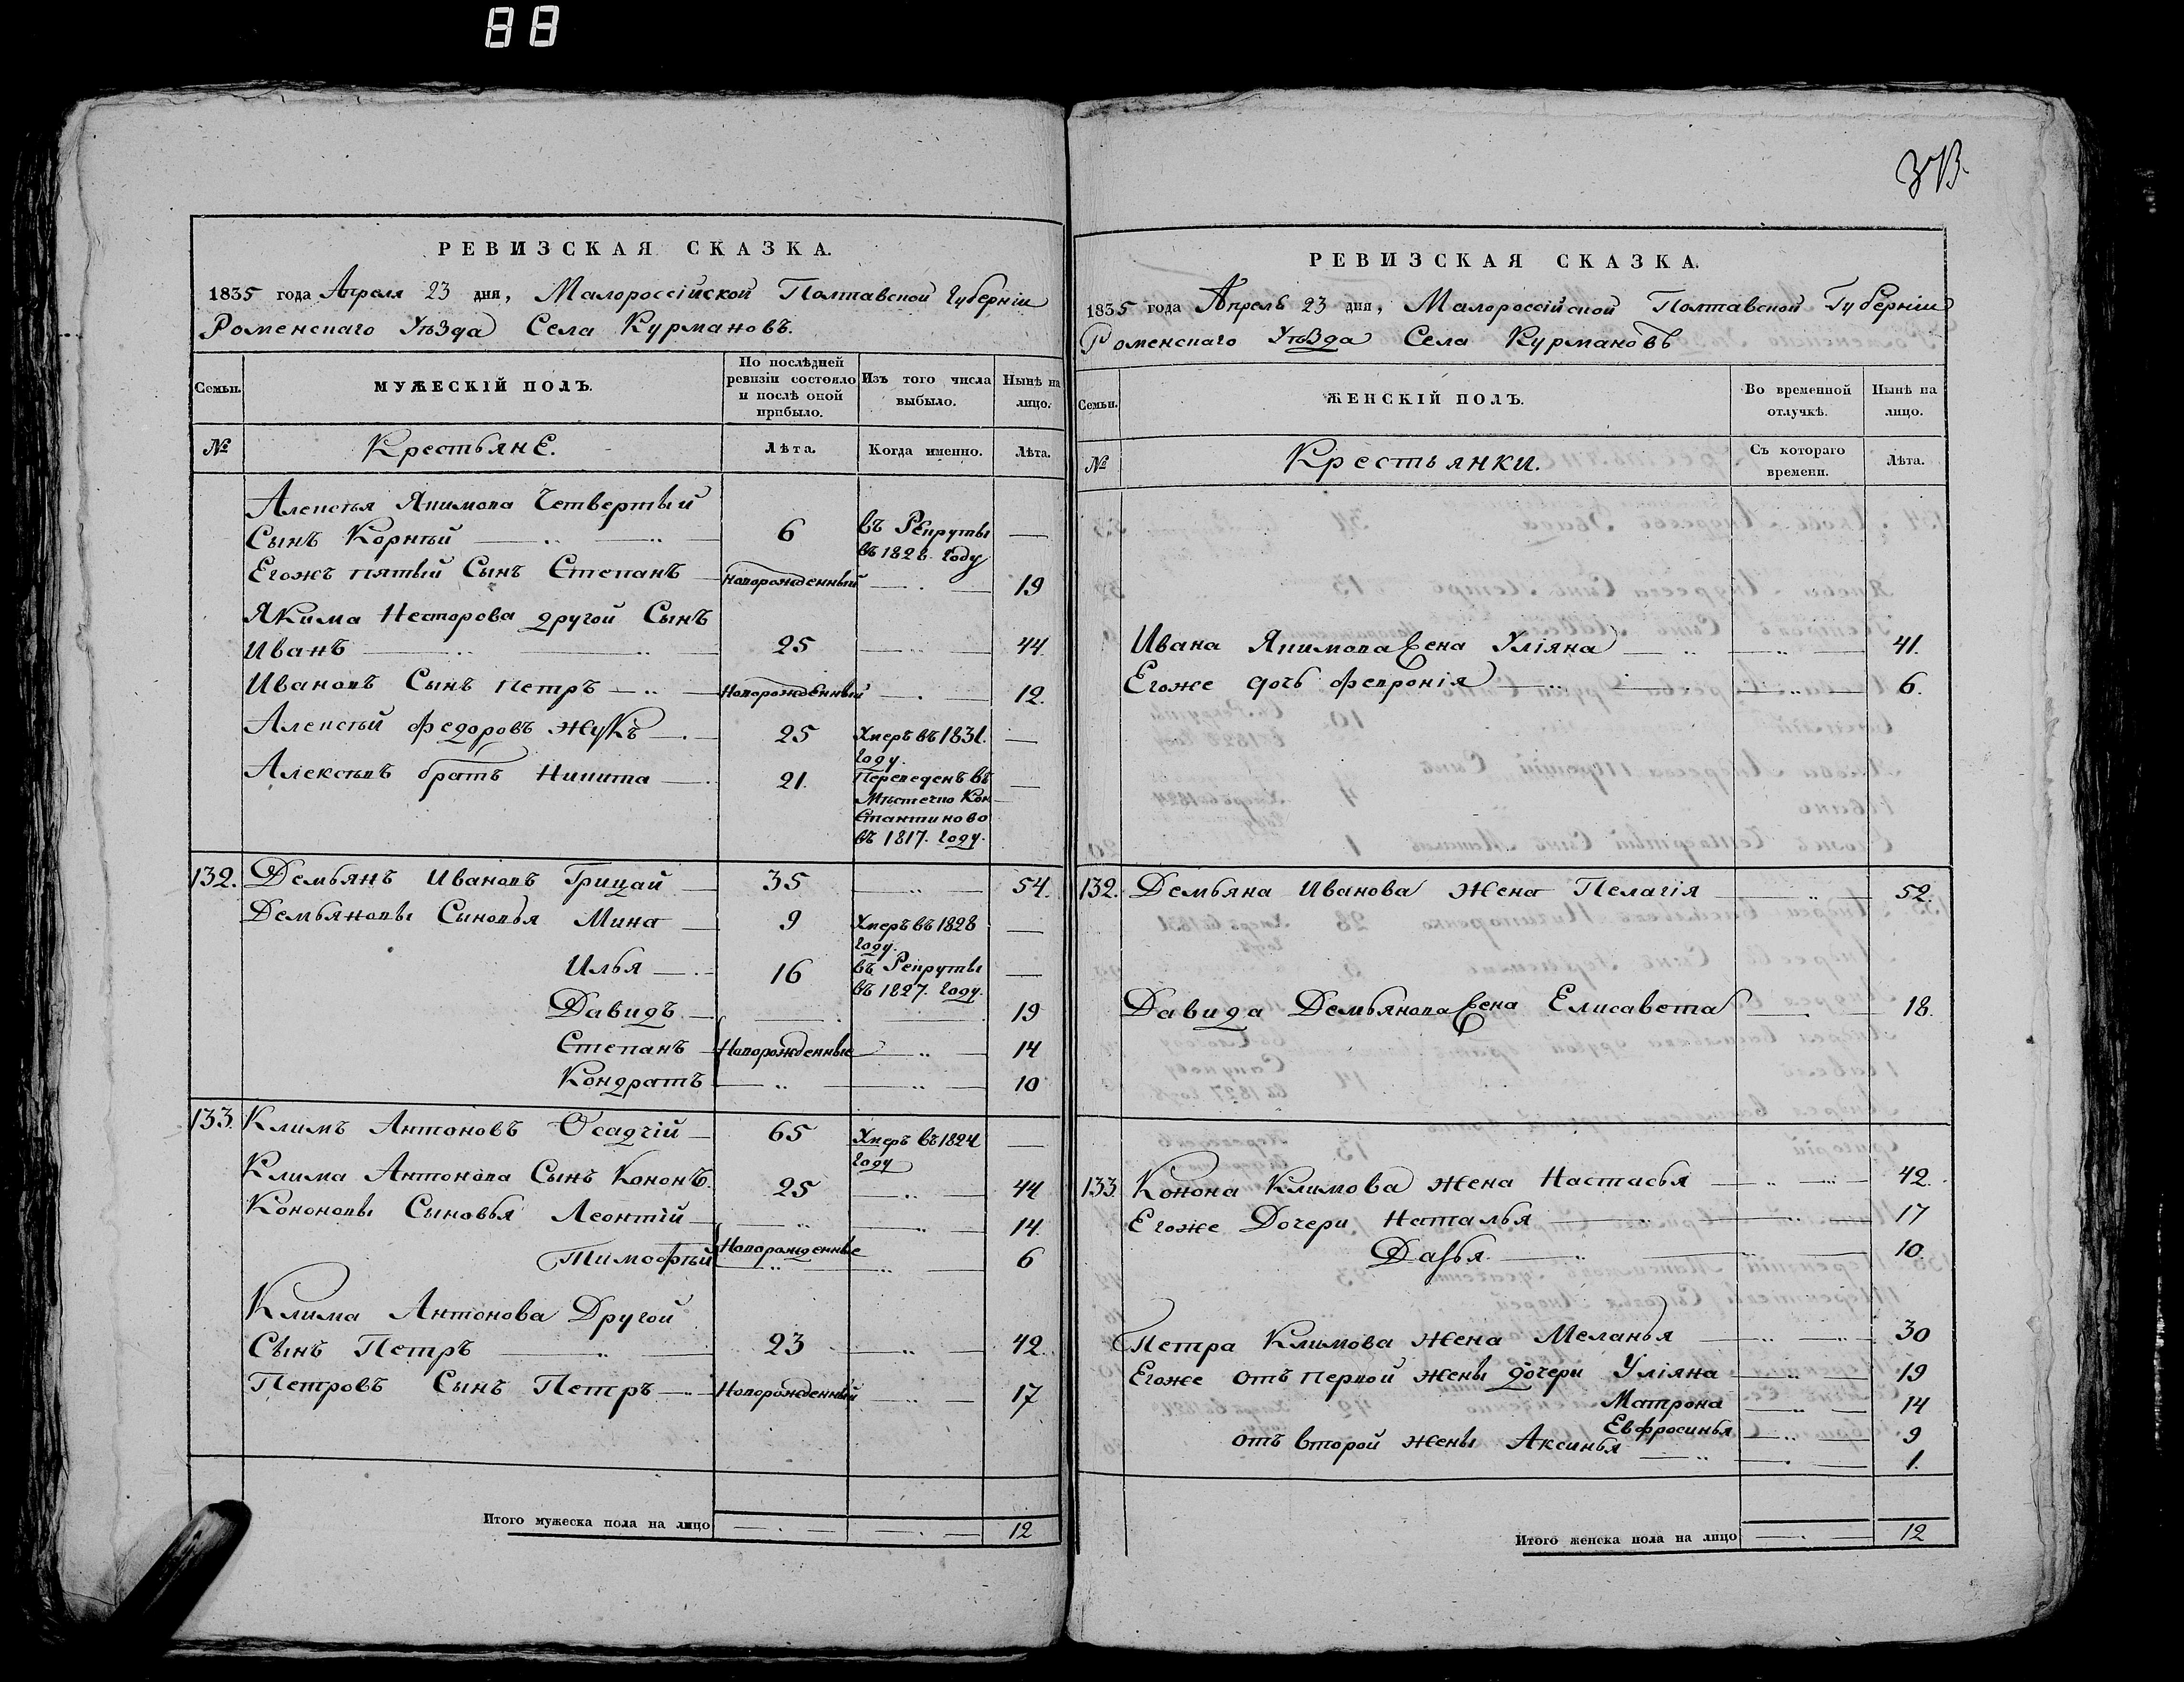 88
РЕВИЗСКАЯ СКАЗКА.
1835 года Апреля 23 дня, Малороссійской Полтавской Губерніи
Роменскаго Уѣзда Села Курмановъ.
Семьи.
МУЖЕСКІЙ ПОЛЪ.
По послѣдней ревизіи состояло и послѣ оной прибыло.
Изъ того числа выбыло.
Нынѣ на лицо.
№
Крестьяне.
Лѣта.
Когда именно.
Лѣта.
Алексѣя Якимова Четвертый
Сынъ Корнѣй 6 въ Рекруты
въ 1828 году
Егожъ пятый Сынъ Степанъ Новорожденный 19
Якима Несторова другой Сынъ
Иванъ 25 44
Ивановъ Сынъ Петръ Новорожденный 12.
Алексѣй Федоровъ Жукъ 25 Умеръ въ 1831.
году.
Алексѣевъ братъ Никита 21. Переведенъ въ
Мѣстечко Кон
стантиново
въ 1817. году.
132. Демьянъ Ивановъ Грицай 35 54.
Демьяновы Сыновья Мина 9 Умеръ въ 1828
году.
Илья 16 въ Рекруты
въ 1827. году.
Давидъ 19
Степанъ Новорожденные 14
Кондратъ 10
133. Климъ Антоновъ Осадчій 65 Умеръ въ 1824
году
Клима Антонова Сынъ Кононъ. 25 44
Кононовы Сыновья Леонтій 14.
Тимофѣй Новорожденные 6
Клима Антонова Другой
Сынъ Петръ 23 42.
Петровъ Сынъ Петръ Новорожденный 17
Итого мужеска пола на лицо 12
РЕВИЗСКАЯ СКАЗКА.
1835 года Апреля 23 дня, Малороссійской Полтавской Губерніи
Роменскаго Уѣзда Села Курмановъ
Семьи.
ЖЕНСКІЙ ПОЛЪ.
Во временной отлучкѣ.
Нынѣ на лицо.
№
Крестьянки.
Съ котораго времени.
Лѣта.
Ивана Якимова жена Уліяна 41.
Егоже дочь Февронія 6.
132. Демьяна Иванова Жена Пелагія 52.
Давида Демьянова жена Елисавета 18.
133. Конона Климова Жена Настасья 42.
Егоже Дочери Наталья 17
Дарья 10.
Петра Климова Жена Меланья 30
Егоже отъ первой жены дочери Уліяна 19
Матрона 14
Евфросинья 9
отъ второй жены Аксинья 1.
Итого женска пола на лицо 12